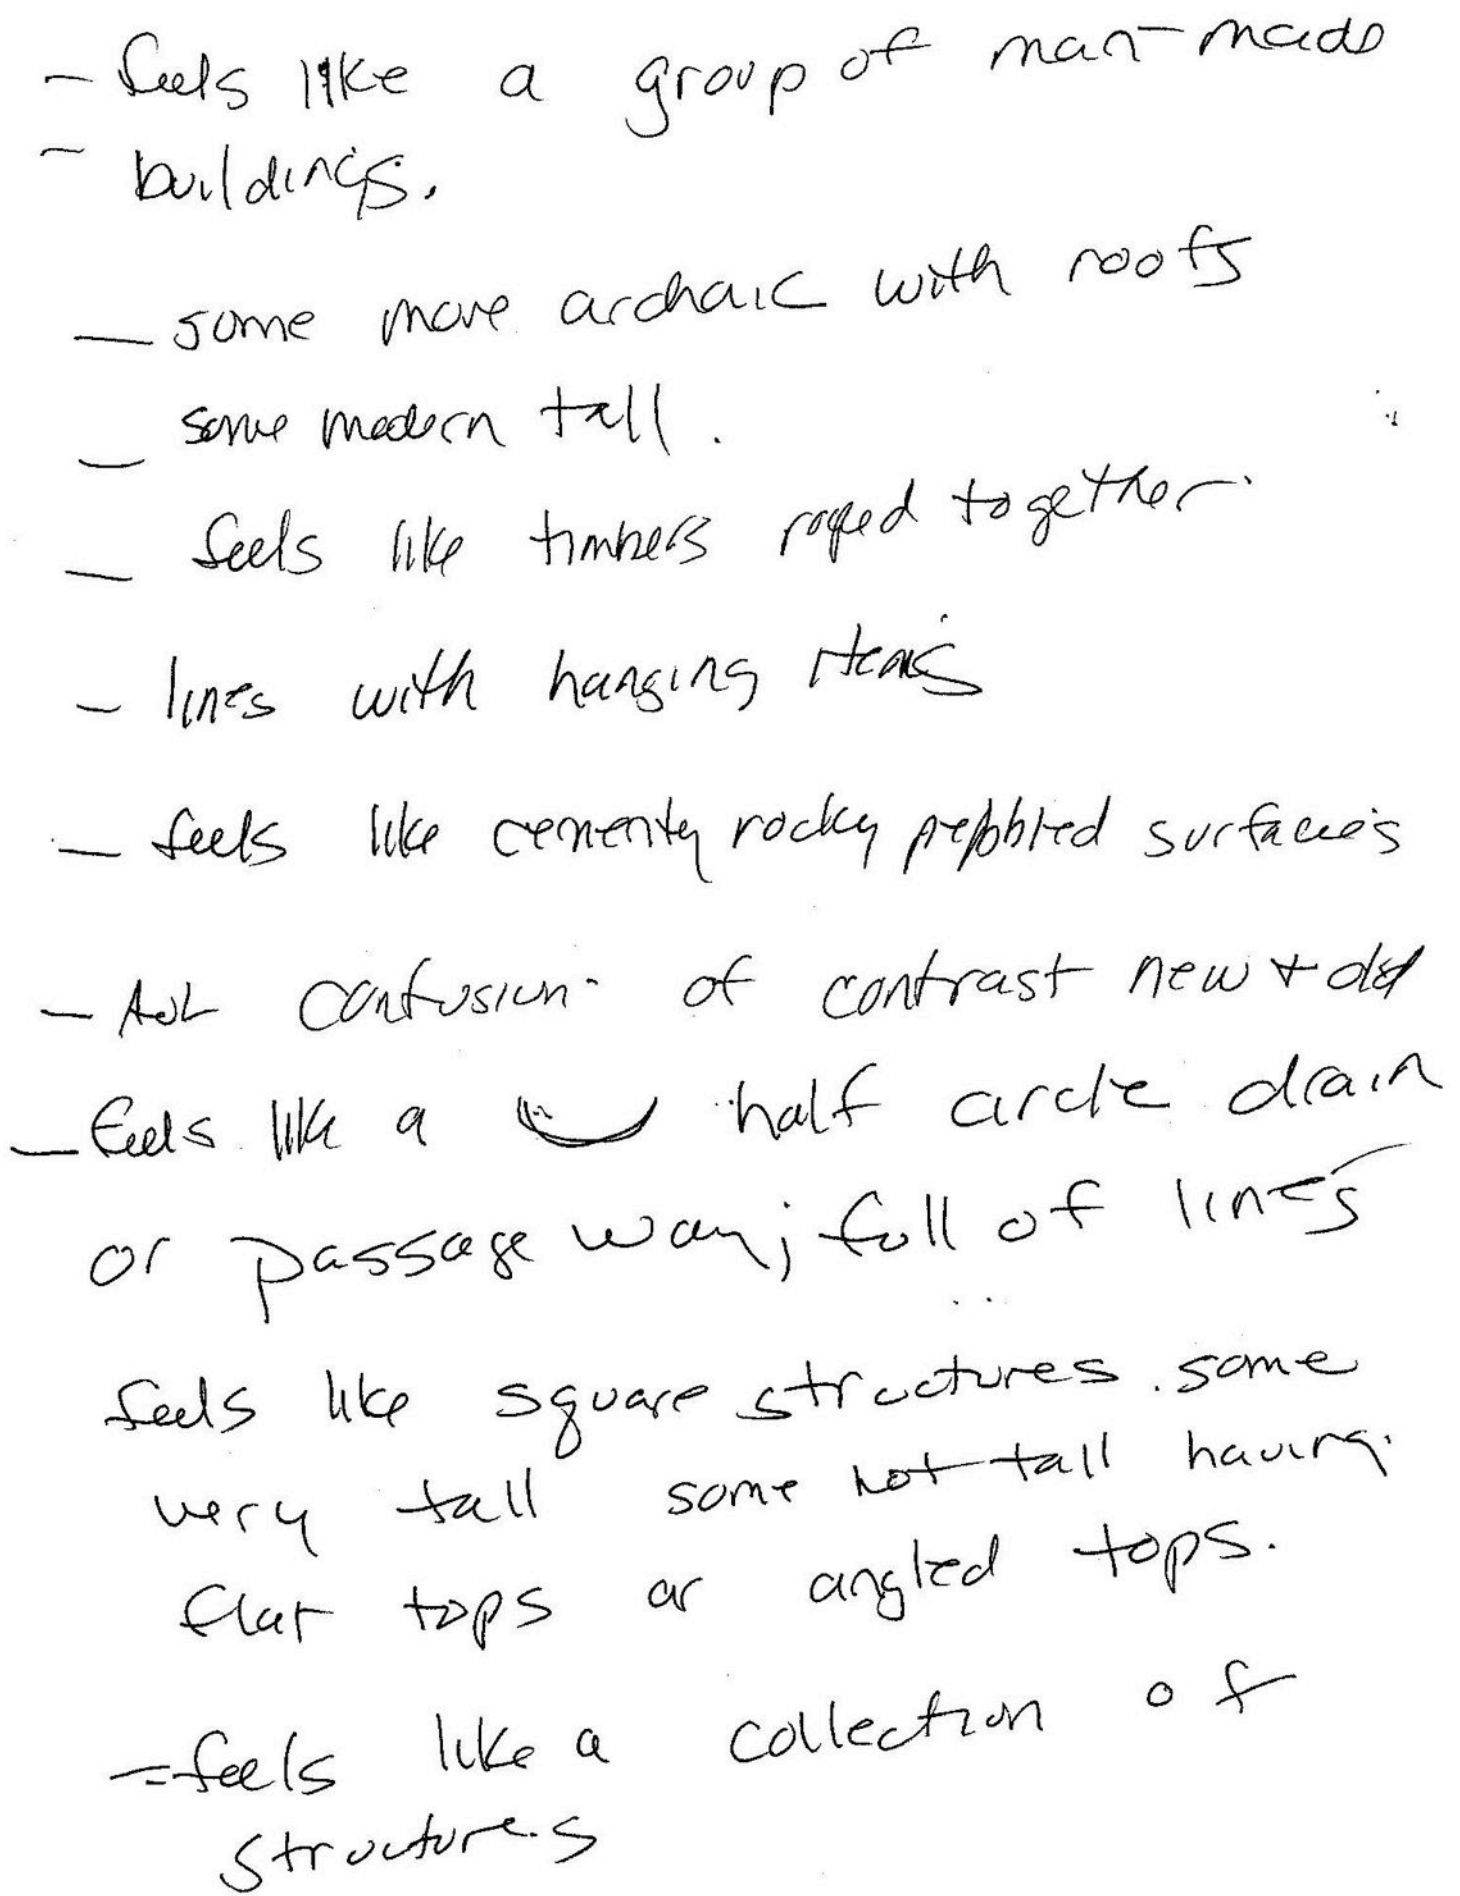 - feels like a group of man-made
- buildings.
- some more archaic with roofs
- some modern tall.
- feels like timbers roped together.
- lines with hanging items
- feels like cementy rocky pebbled surfaces
- AOL confusion of contrast new + old
- feels like a half circle drain
or passage way; full of lines
feels like square structures. some
very tall some not tall having
flat tops or angled tops.
- feels like a collection of
structures